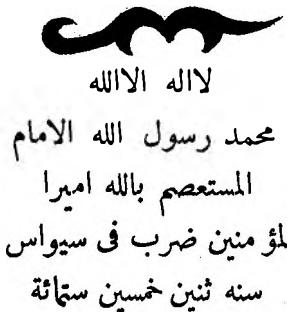 لااله الاالله
محمد رسول الله الامام
المستعصم بالله اميرا
لمؤ منين ضرب فى سيواس
سنه ثنين خمسين ستمائة